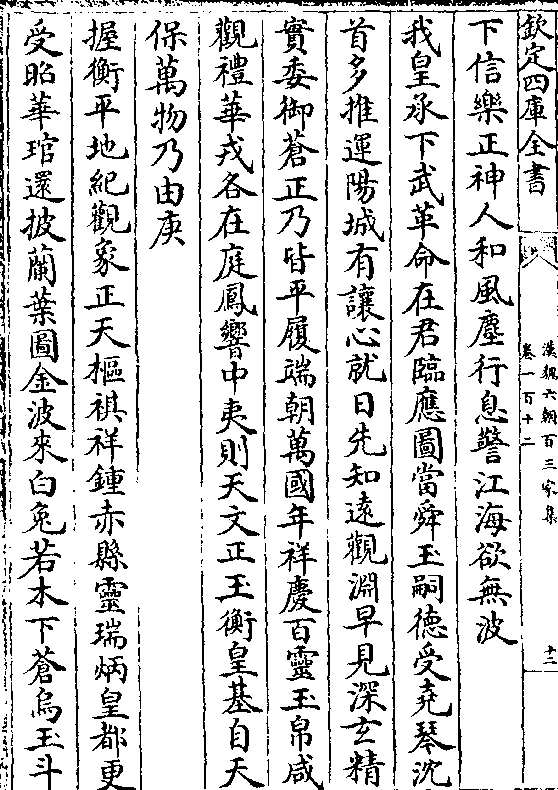 欽定四庫全書
漢魏六朝百三家集
卷一百十二
十二
下信樂正神人和風塵行息警江海欲無波
我皇承下武革命在君臨應圖當舜玉嗣德受堯琴沈
首多推運陽城有讓心就日先知遠觀淵早見深玄精
實委御蒼正乃皆平履端朝萬國年祥慶百靈玉帛咸
觀禮華戎各在庭鳳響中夷則天文正玉衡皇基自天
保萬物乃由庚
握衡平地紀觀象正天樞祺祥鍾赤縣靈瑞炳皇都更
受昭華琯還披蘭葉圖金波來白兔若木下蒼烏玉斗